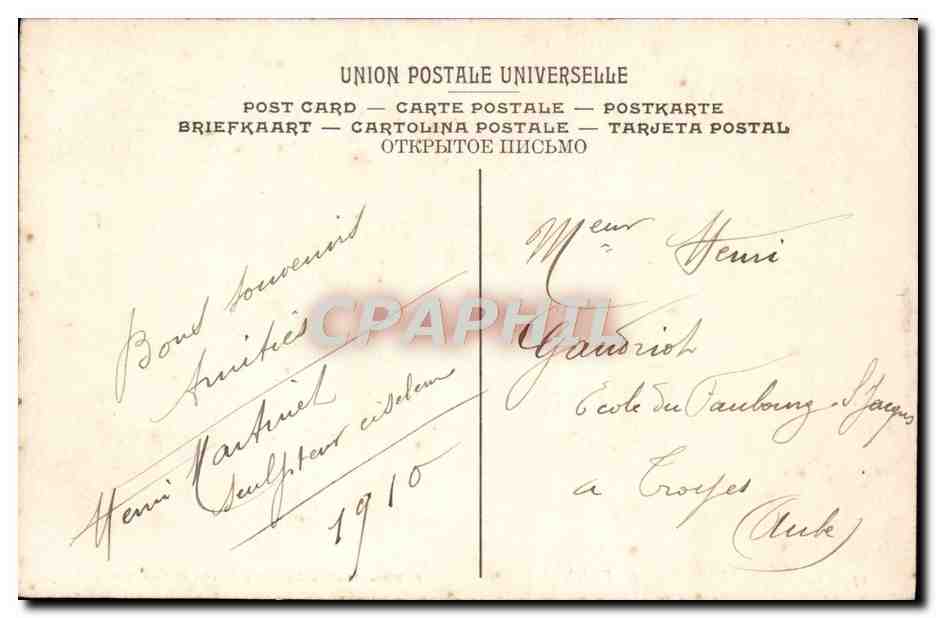 UNION POSTALE UNIVERSELLE
POST CARD — CARTE POSTALE — POSTKARTE
BRIEFKAART — CARTOLINA POSTALE — TARJETA POSTAL
ОТКРЫТОЕ ПИСЬМО
Bons souvenirs
Amitiés
Henri Martinet
sculpteur ciseleur
1910
Meur Henri
Gaudriot
Ecole du Faubourg St Jacques
a Troyes
(Aube)
CPAPHIL